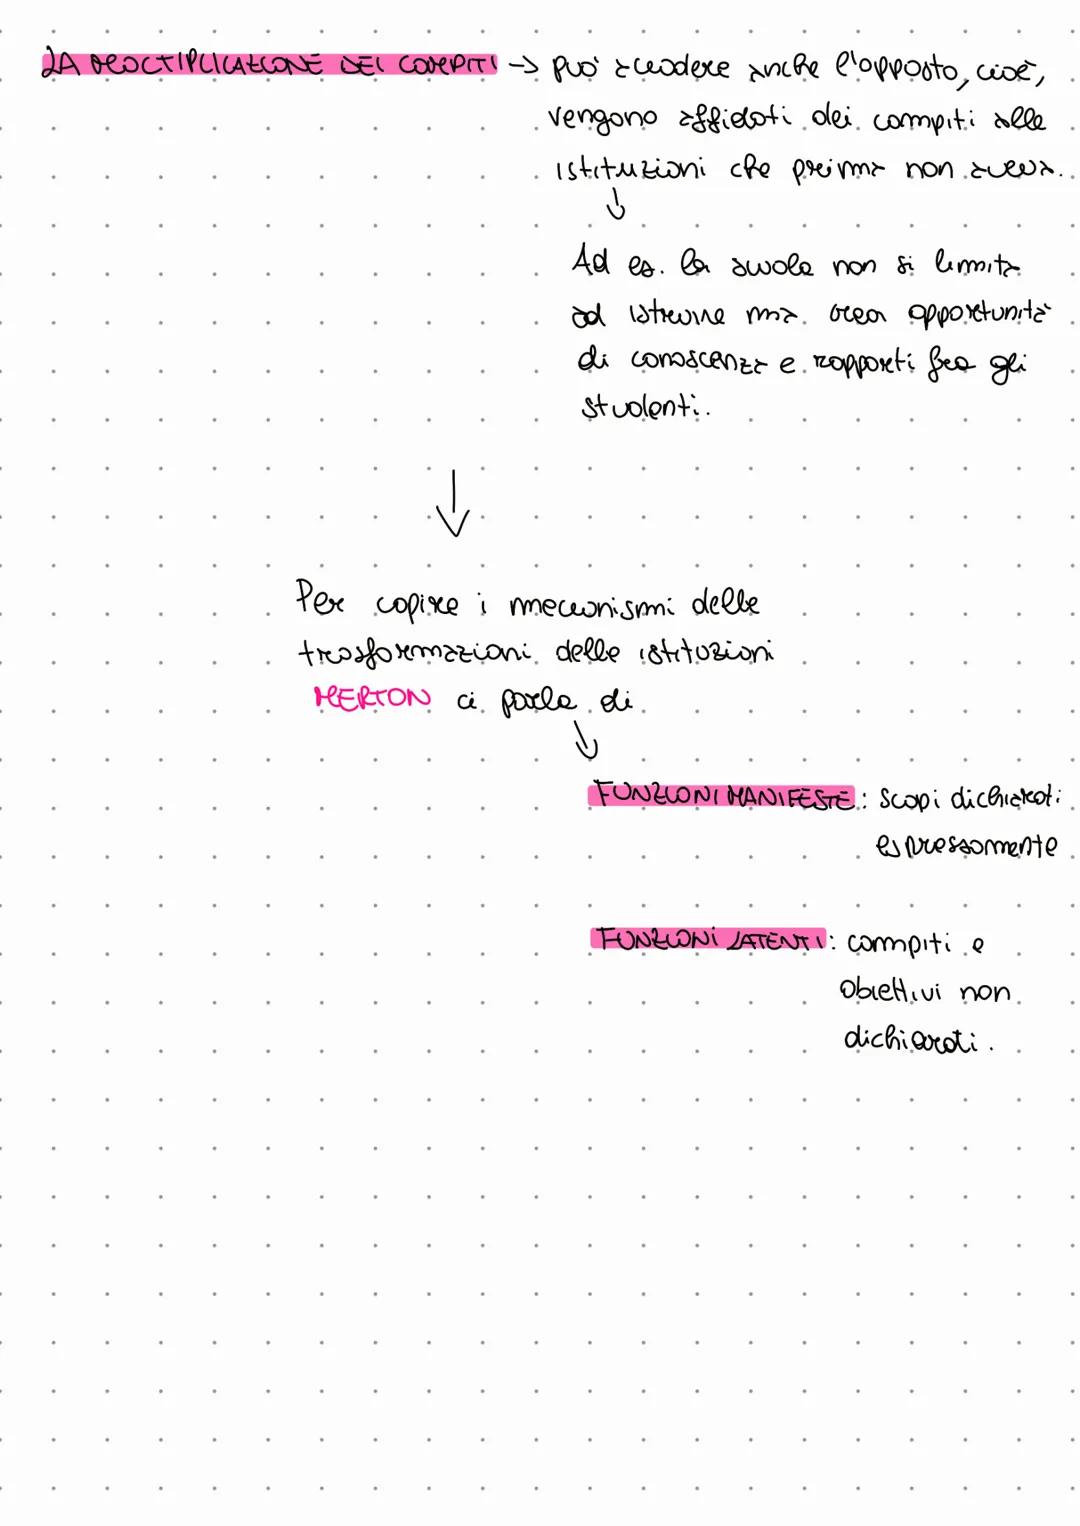 LA MOLTIPLICAZIONE DEI COMPITI → può accadere anche l'opposto, cioè,
vengono affidati dei compiti alle
istituzioni che prima non aveva.
↓
Ad es. la scuola non si limita
ad istruire ma crea opportunità
di conoscenza e rapporti fra gli
studenti.
↓
Per capire i meccanismi delle
trasformazioni delle istituzioni
MERTON ci parla di
↓
FUNZIONI MANIFESTE: Scopi dichiarati
espressamente
FUNZIONI LATENTI: compiti e
obiettivi non
dichiarati.